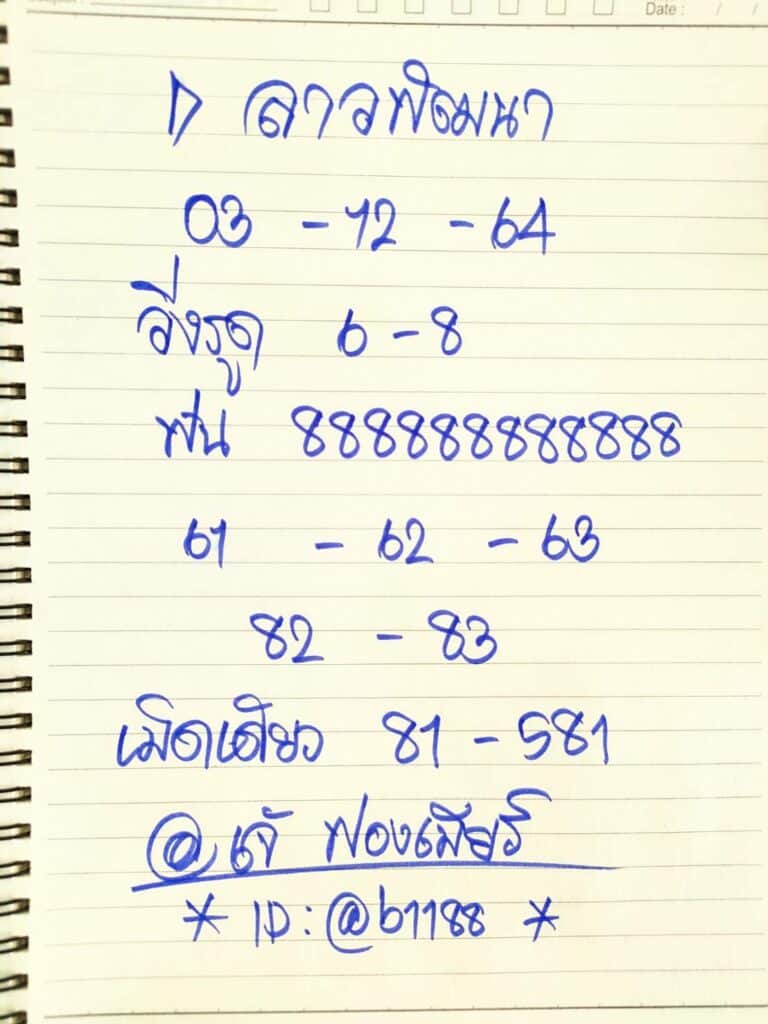 Date : / /
▷ ลาวพัฒนา
03 - 12 - 64
วิ่งรูด 6 - 8
ฟัน 888888888888
61 - 62 - 63
82 - 83
เม็ดเดียว 81 - 581
@เจ๊ ฟองเบียร์
* ID : @b1188 *